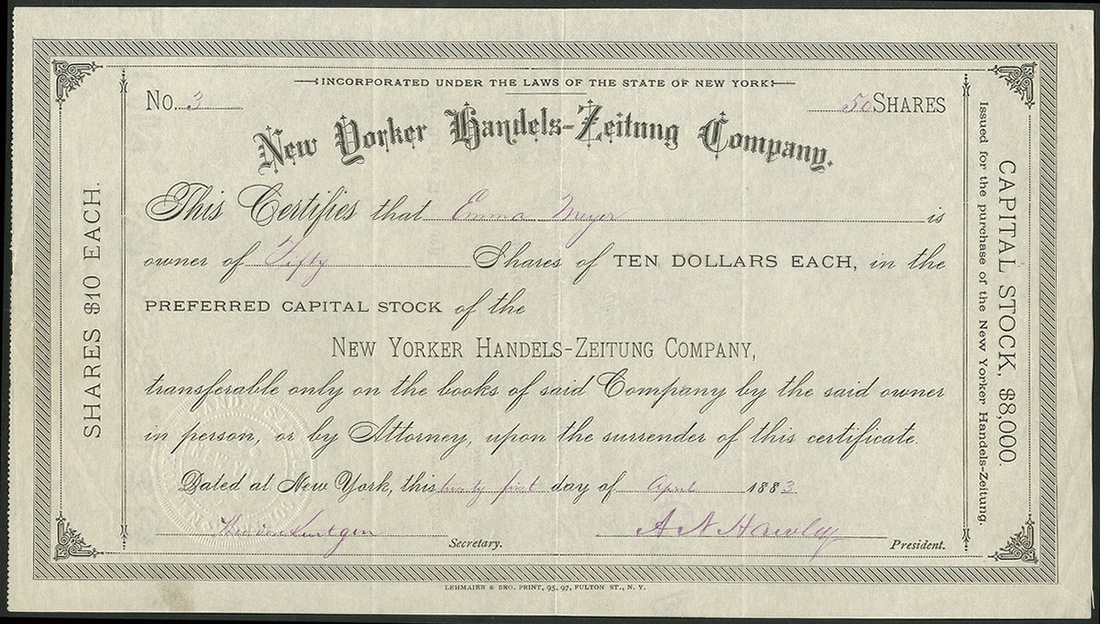 INCORPORATED UNDER THE LAWS OF THE STATE OF NEW YORK
No. 3
50 SHARES
New Yorker Handels-Zeitung Company.
This Certifies that Emma Meyer is
owner of Fifty Shares of TEN DOLLARS EACH, in the
PREFERRED CAPITAL STOCK of the
NEW YORKER HANDELS-ZEITUNG COMPANY,
transferable only on the books of said Company by the said owner
in person, or by Attorney, upon the surrender of this certificate.
Dated at New York, this twenty first day of April 1883
Secretary.
A N Hawley
President.
SHARES $10 EACH.
CAPITAL STOCK, $8,000.
Issued for the purchase of the New Yorker Handels-Zeitung.
LEHMAIER & BRO. PRINT, 95, 97, FULTON ST., N. Y.